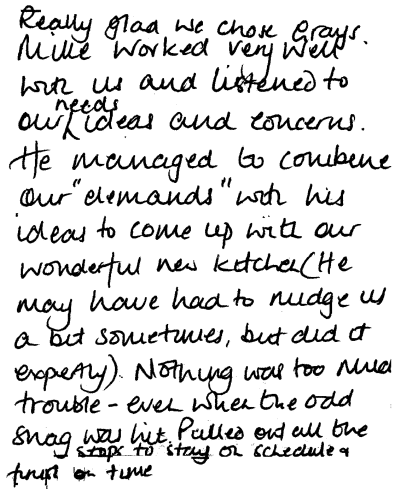 Really glad we chose Grays.
Mike worked very well
with us and listened to
our needs ideas and concerns.
He managed to combine
our "demands" with his
ideas to come up with our
wonderful new kitchen (He
may have had to nudge us
a bit sometimes, but did it
expertly). Nothing was too much
trouble - even when the odd
snag was hit. Pulled out all the
stops to stay on schedule &
finish on time